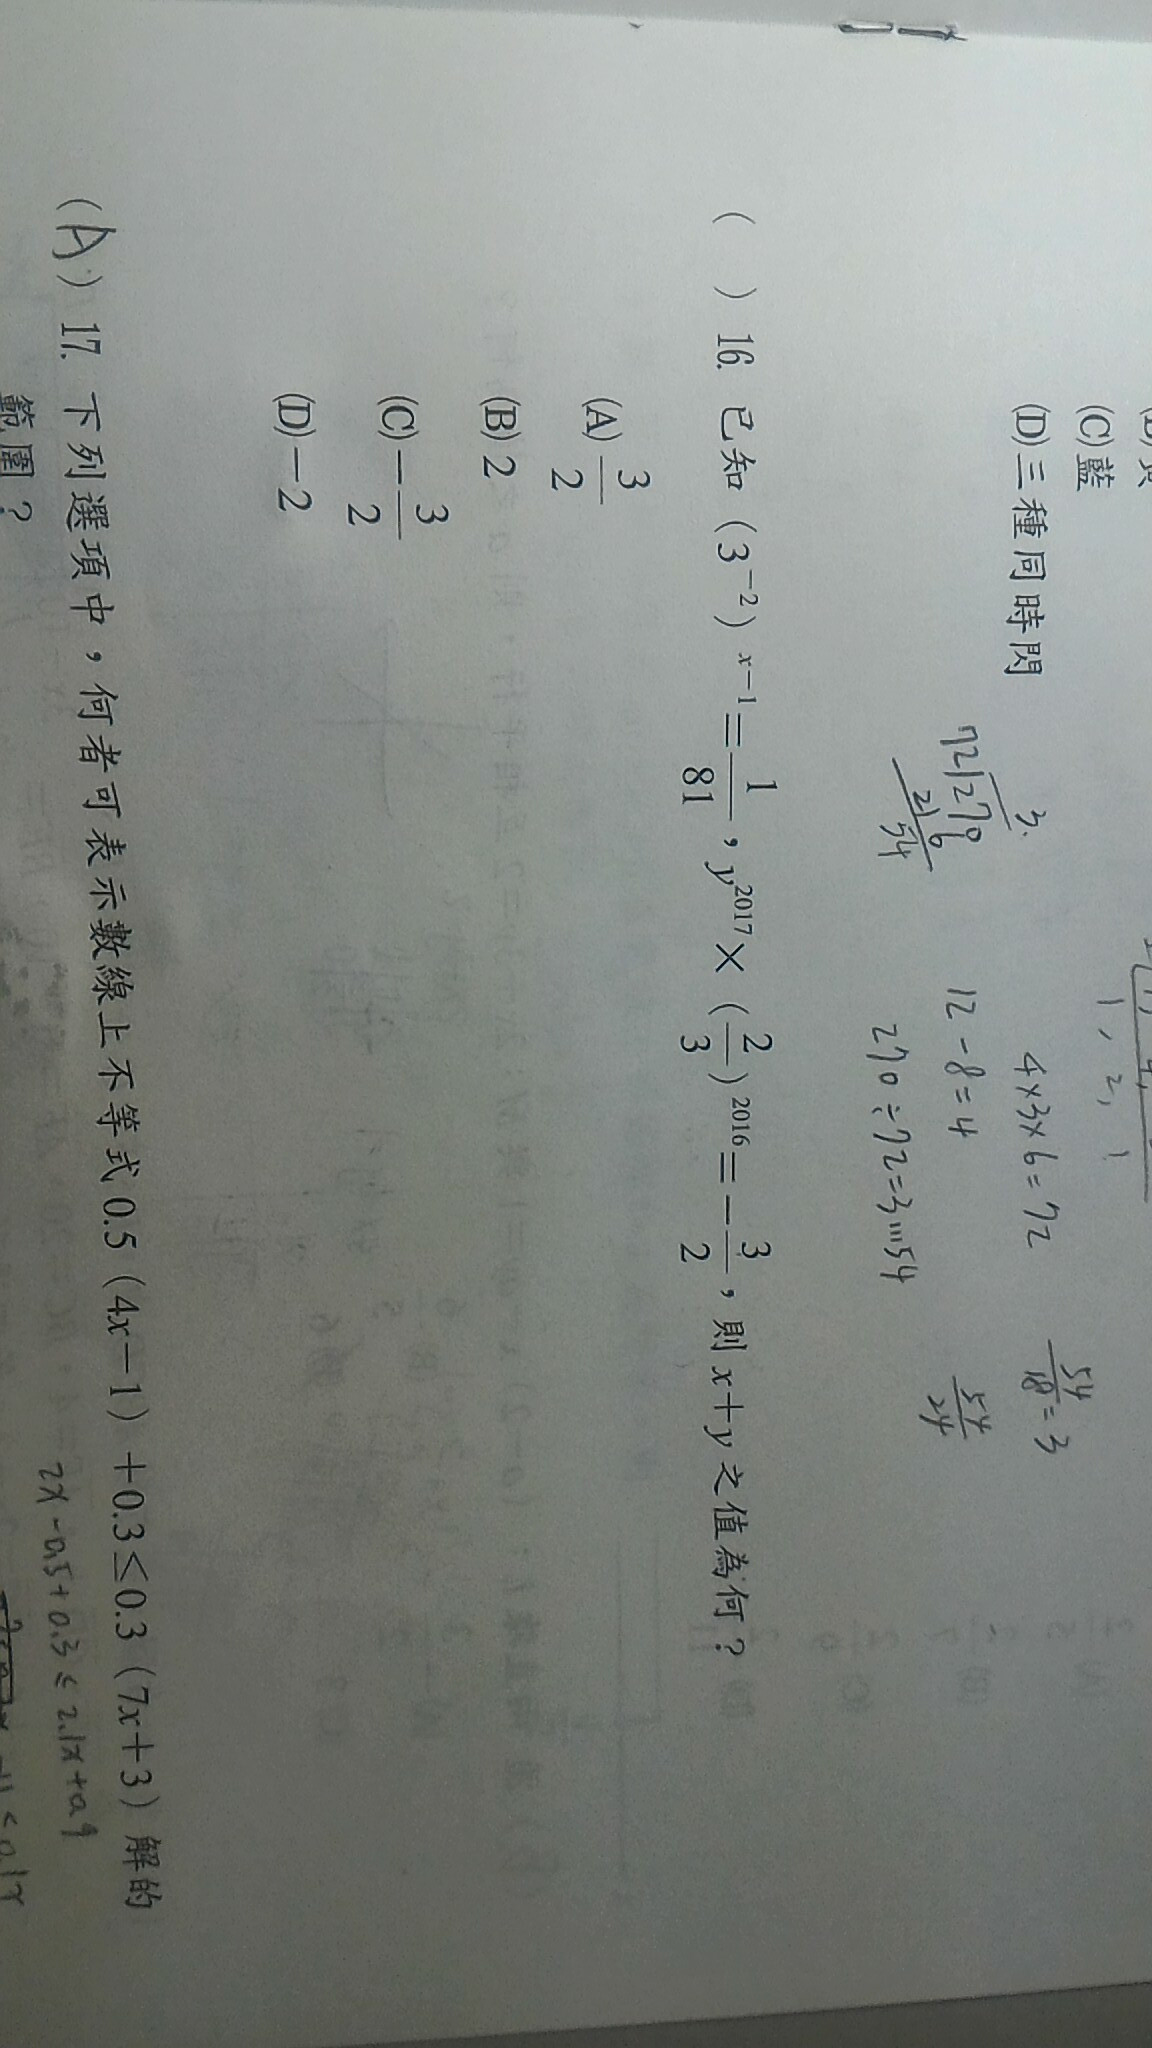 (C)藍
(D)三種同時閃
3
72)270
216
54
4×3×6=72
12-8=4
270÷72=3…54
54/18=3
54/24
1, 2, 1
(　) 16. 已知 (3⁻²)ˣ⁻¹=1/81，y²⁰¹⁷×(2/3)²⁰¹⁶=-3/2，則x+y之值為何？
(A) 3/2
(B) 2
(C) -3/2
(D) -2
(A) 17. 下列選項中，何者可表示數線上不等式0.5（4x-1）+0.3≤0.3（7x+3）解的
範圍？
2x-0.5+0.3≤2.1x+0.9